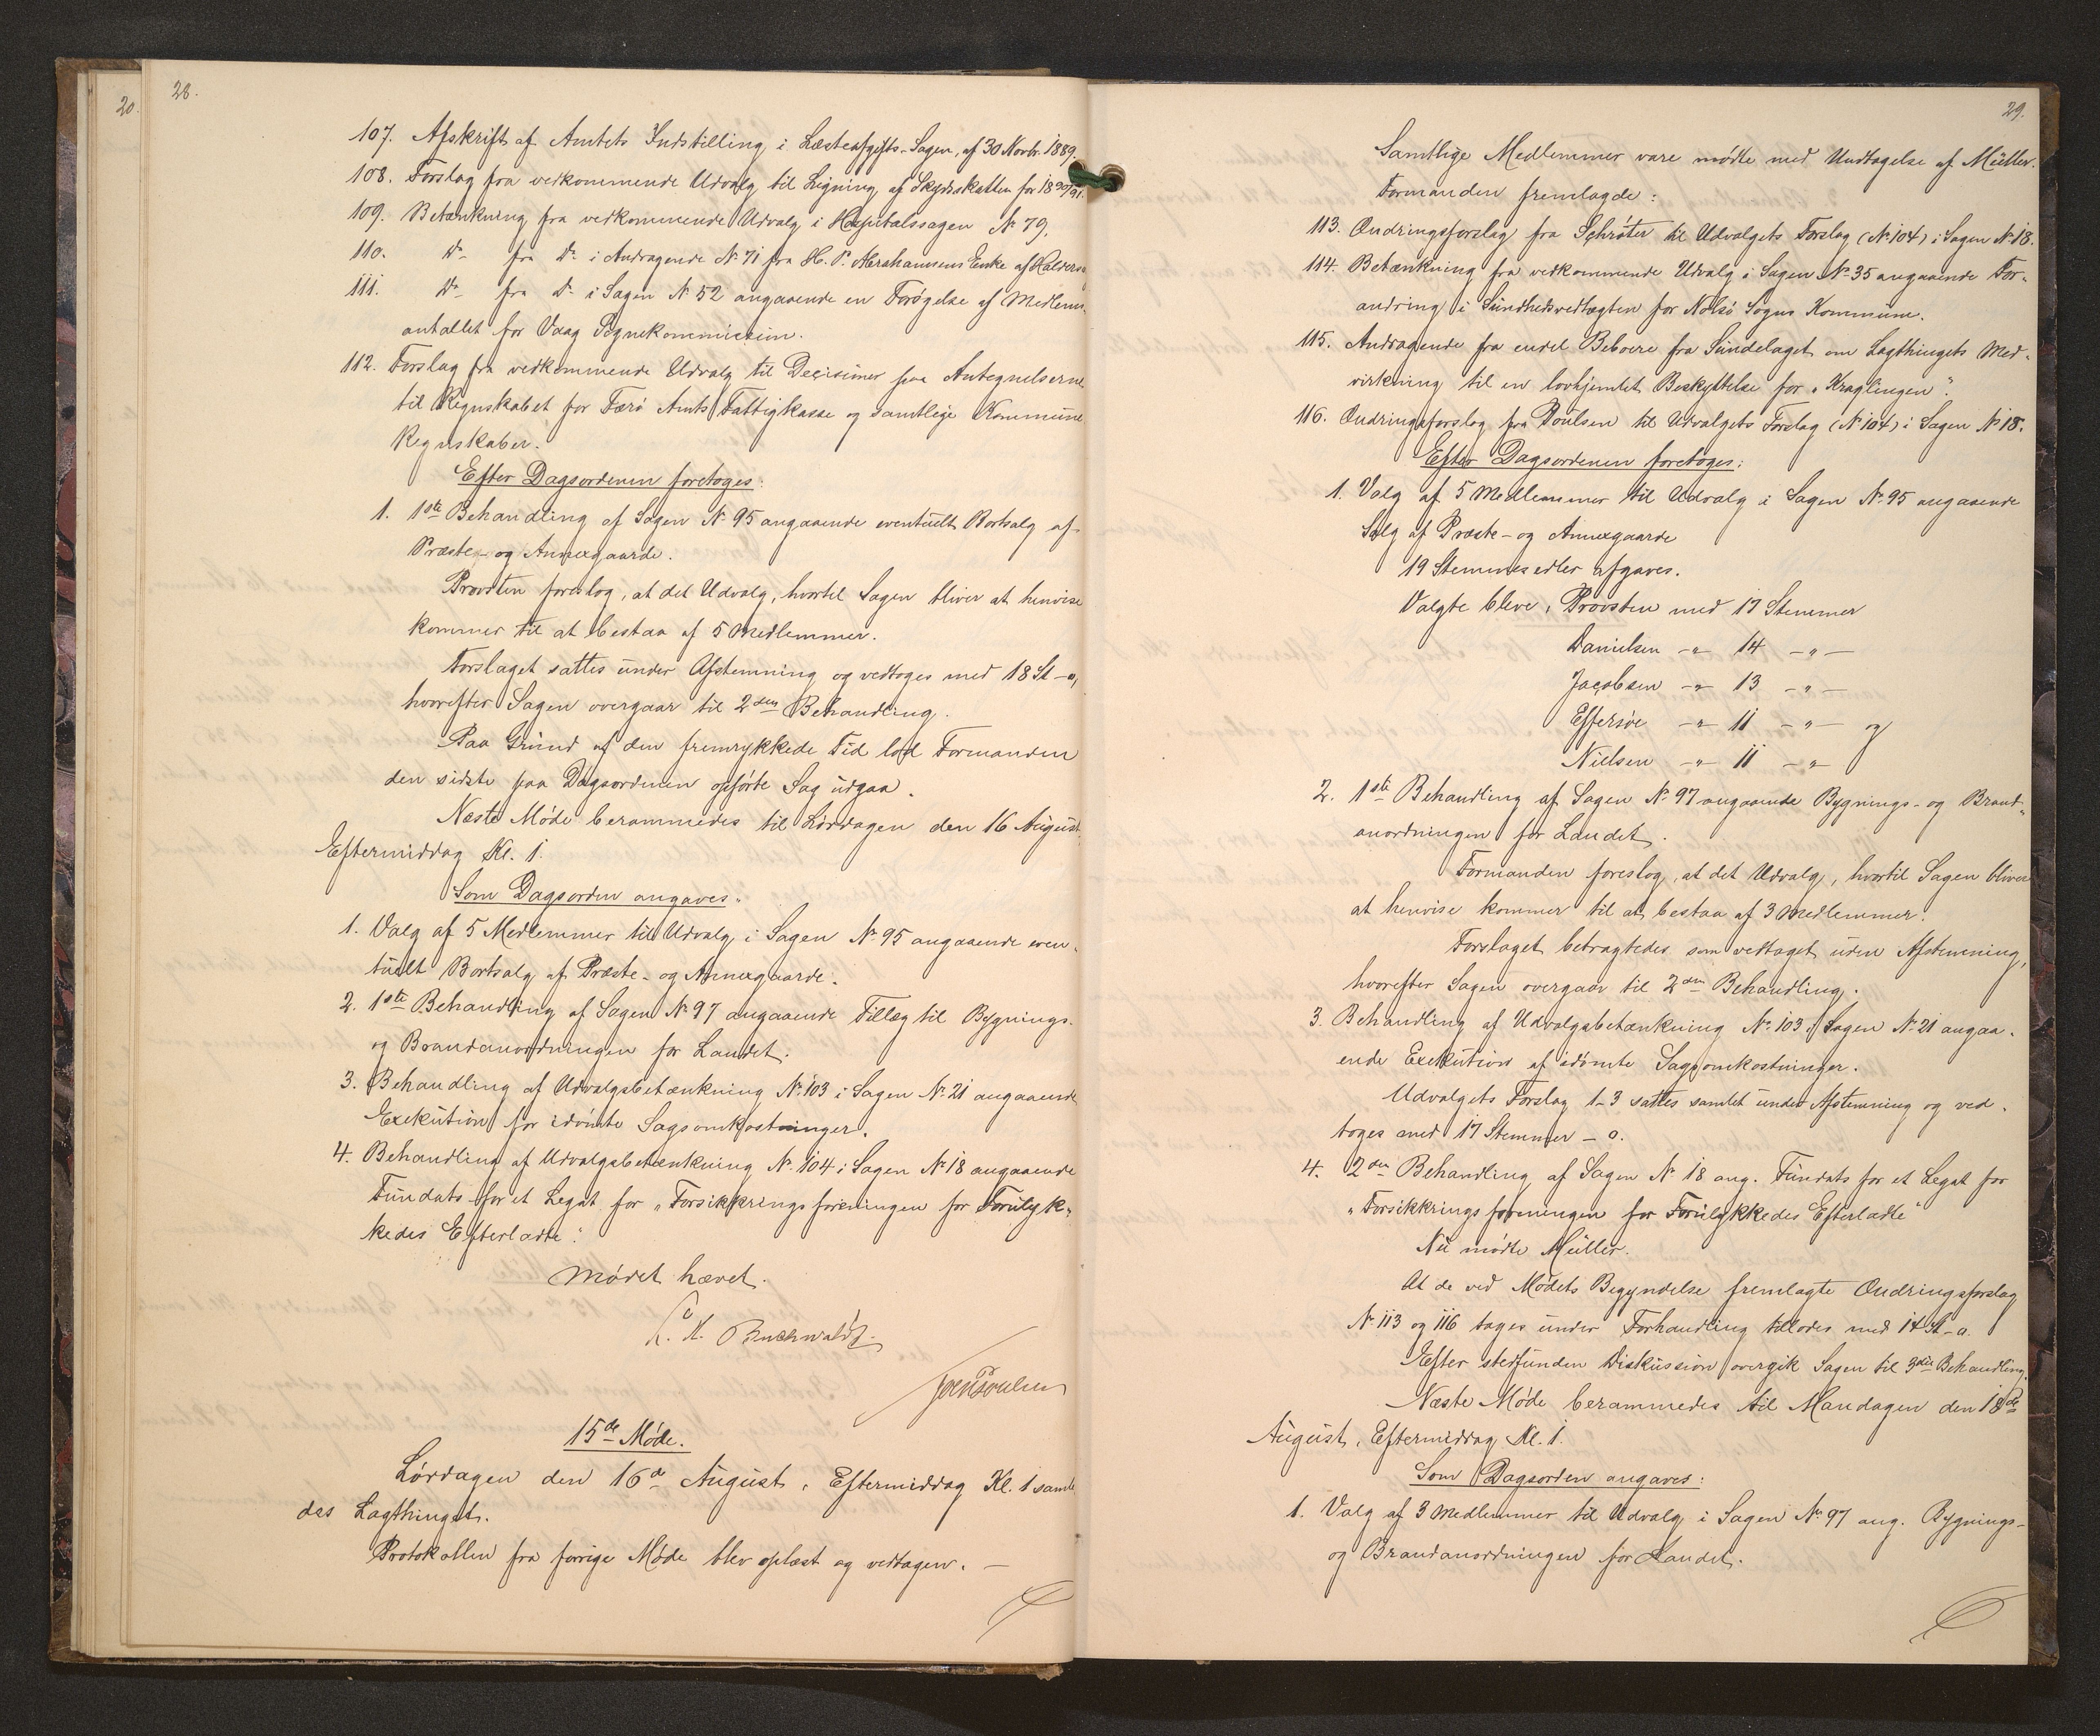 20.
28.
107. Afskrift af Amtets Indstilling i Læsteafgifts-Sagen, af 30 Novbr. 1889.
108. Forslag fra vedkommende Udvalg til Ligning af Skydsskatten for 1890/91.
109. Betænkning fra vedkommende Udvalg i Hospitalssagen № 79.
110. Do fra Do i Andragende № 71 fra H. P. Abrahamsens Enke af
111. Do fra Do i Sagen № 52 angaaende en Forøgelse af Medlems-
antallet for Vaag Sognekommission.
112. Forslag fra vedkommende Udvalg til Decisioner paa Antegnelserne
til Regnskabet for Færø Amts Fattigkasse og samtlige Kommune
Regnskaber.
Efter Dagsordenen foretoges:
1. 1ste Behandling af Sagen № 95 angaaende eventuelt Bortsalg af
Præste- og Annexgaarde.
Provsten foreslog, at det Udvalg, hvortil Sagen bliver at henvise
kommer til at bestaa af 5 Medlemmer.
Forslaget sattes under Afstemning og vedtoges med 18 St - 0,
hvorefter Sagen overgaar til 2den Behandling.
Paa Grund af den fremrykkede Tid lod Formanden
den sidste paa Dagsordenen opførte Sag udgaa.
Næste Møde berammedes til Lørdagen den 16 August
Eftermiddag Kl. 1.
Som Dagsorden angaves:
1. Valg af 5 Medlemmer til Udvalg i Sagen № 95 angaaende even-
tuelt Bortsalg af Præste- og Annexgaarde.
2. 1ste Behandling af Sagen № 97 angaaende Tillæg til Bygnings-
og Brandanordningen for Landet.
3. Behandling af Udvalgsbetænkning № 103 i Sagen № 21 angaaende
Exekution for idømte Sagsomkostninger.
4. Behandling af Udvalgsbetænkning № 104 i Sagen № 18 angaaende
Fundats for et Legat for „Forsikkringsforeningen for Forulyk-
kedes Efterladte."
Mødet hævet.
Buchwaldt.
Joen Poulsen
15de Møde.
Lørdagen den 16de August, Eftermiddag Kl. 1 samle
des Lagthinget.
Protokollen fra forrige Møde blev oplæst og vedtagen. —
29.
Samtlige Medlemmer vare mødte med Undtagelse af Müller.
Formanden fremlagde:
113. Ændringsforslag fra Schrøter til Udvalgets Forslag (№ 104) i Sagen № 18.
114. Betænkning fra vedkommende Udvalg i Sagen № 35 angaaende For-
andring i Sundhedsvedtægten for Nolsø Sogns Kommune.
115. Andragende fra endel Beboere fra Sundelaget om Lagthingets Med-
virkning til en lovhjemlet Beskyttelse for „Kraglingen".
116. Ændringsforslag fra Poulsen til Udvalgets Forslag (№ 104) i Sagen № 18.
Efter Dagsordenen foretoges:
1. Valg af 5 Medlemmer til Udvalg i Sagen № 95 angaaende
Salg af Præste- og Annexgaarde
19 Stemmesedler afgaves.
Valgte bleve, Provsten med 17 Stemmer
Danielsen - „ - 14 - „ -
Jacobsen - „ - 13 - „ -
Effersøe - „ - 11 - „ - og
Nielsen - „ - 11 - „ -
2. 1ste Behandling af Sagen № 97 angaaende Bygnings- og Brand-
anordningen for Landet.
Formanden foreslog, at det Udvalg, hvortil Sagen bliver
at henvise kommer til at bestaa af 3 Medlemmer.
Forslaget betragtedes som vedtaget uden Afstemning,
hvorefter Sagen overgaar til 2den Behandling.
3. Behandling af Udvalgsbetænkning № 103 i Sagen № 21 angaa-
ende Exekution af idømte Sagsomkostninger.
Udvalgets Forslag 1-3 sattes samlet under Afstemning og ved-
toges med 17 Stemmer - 0.
4. 2den Behandling af Sagen № 18 ang. Fundats for et Legat for
„Forsikkringsforeningen for Forulykkedes Efterladte"
Nu mødte Müller.
At de ved Mødets Begyndelse fremlagte Ændringsforslag
№ 113 og 116 tages under Forhandling tillodes med 14 St - 0.
Efter stedfunden Diskussion overgik Sagen til 3die Behandling.
Næste Møde berammedes til Mandagen den 18de
August, Eftermiddag Kl. 1.
Som Dagsorden angaves:
1. Valg af 3 Medlemmer til Udvalg i Sagen № 97 ang. Bygnings-
og Brandanordningen for Landet.